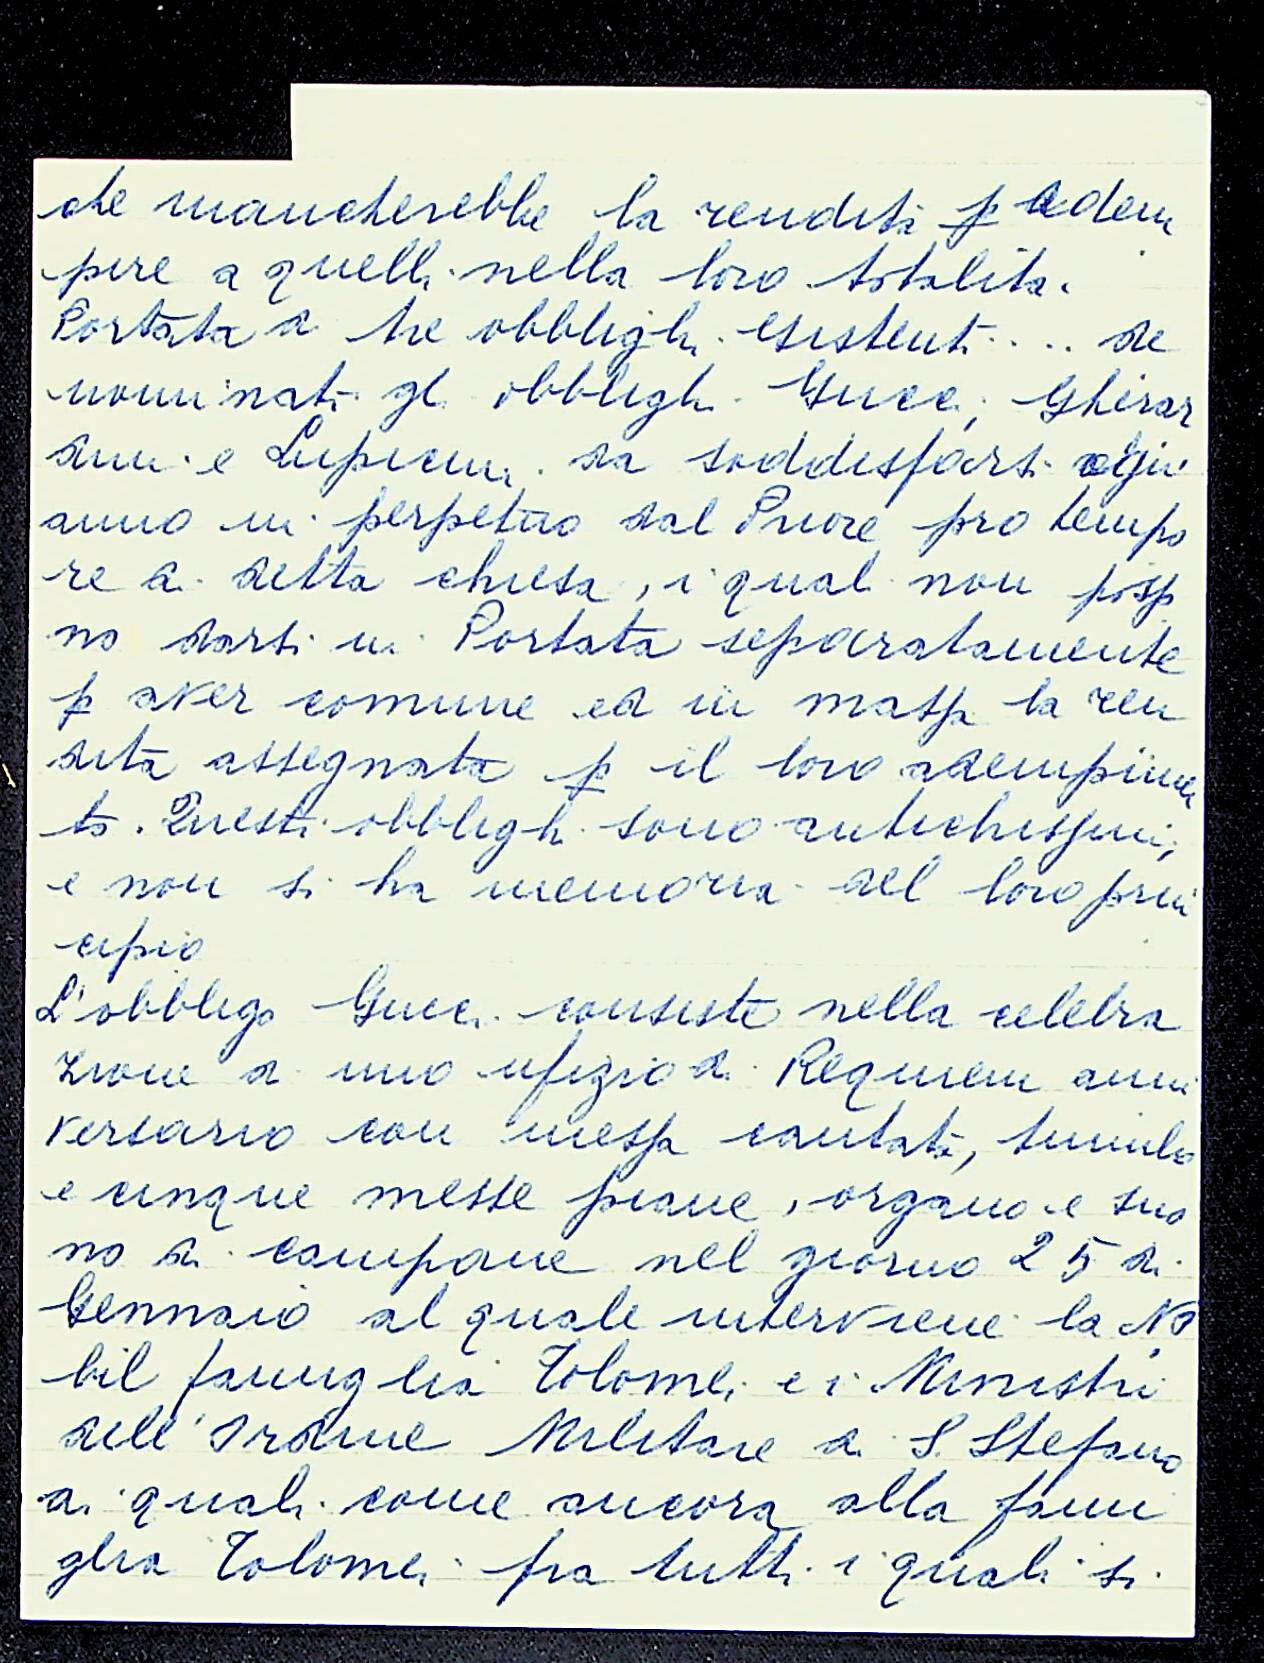 che mancherebbe la rendita p adem
pire a quelli nella loro totalità.
Portata di tre obblighi esistenti .... de
nominati gli obblighi Gucci, Ghirar
dini e Lupicini da soddisfarsi ogni
anno in perpetuo dal Priore pro tempo
re di detta chiesa, i quali non posso
no darsi in Portata separatamente
p aver comune ed in massa la ren
dita assegnata p il loro adempimen
to. Questi obblighi sono antichissimi,
e non si ha memoria del loro prin
cipio
L'obbligo Gucci consiste nella celebra
zione di uno ufizio di Requiem anni
versario con messa cantata, tumulo
e cinque messe piane, organo e suo
no di campane nel giorno 25 di
Gennaio al quale interviene la No
bil famiglia Tolomei e i Ministri
dell'Ordine Militare di S. Stefano
ai quali come ancora alla fami
glia Tolomei fra tutti i quali si